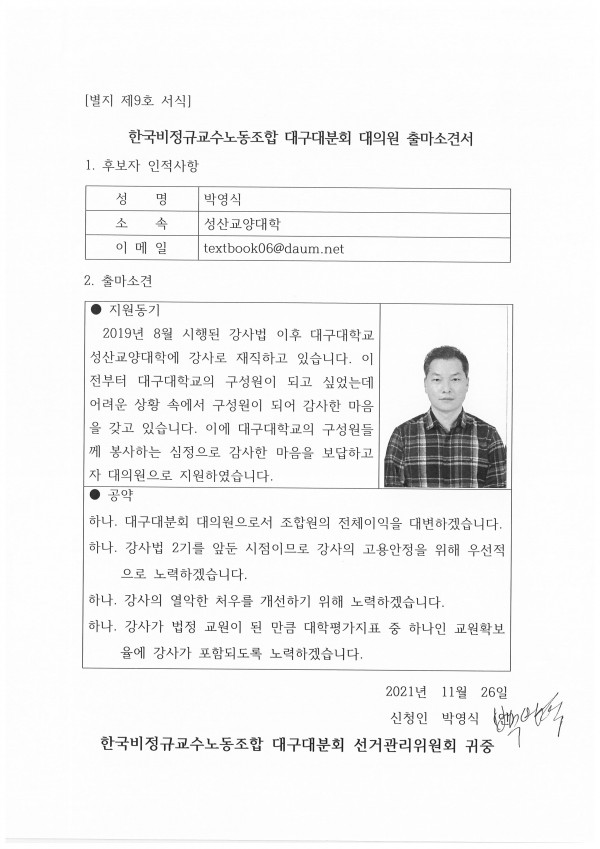 [별지 제9호 서식]
한국비정규교수노동조합 대구대분회 대의원 출마소견서
1. 후보자 인적사항
성 명 박영식
소 속 성산교양대학
이 메 일 textbook06@daum.net
2. 출마소견
● 지원동기
2019년 8월 시행된 강사법 이후 대구대학교
성산교양대학에 강사로 재직하고 있습니다. 이
전부터 대구대학교의 구성원이 되고 싶었는데
어려운 상황 속에서 구성원이 되어 감사한 마음
을 갖고 있습니다. 이에 대구대학교의 구성원들
께 봉사하는 심정으로 감사한 마음을 보답하고
자 대의원으로 지원하였습니다.
● 공약
하나. 대구대분회 대의원으로서 조합원의 전체이익을 대변하겠습니다.
하나. 강사법 2기를 앞둔 시점이므로 강사의 고용안정을 위해 우선적
으로 노력하겠습니다.
하나. 강사의 열악한 처우를 개선하기 위해 노력하겠습니다.
하나. 강사가 법정 교원이 된 만큼 대학평가지표 중 하나인 교원확보
율에 강사가 포함되도록 노력하겠습니다.
2021년 11월 26일
신청인 박영식
한국비정규교수노동조합 대구대분회 선거관리위원회 귀중